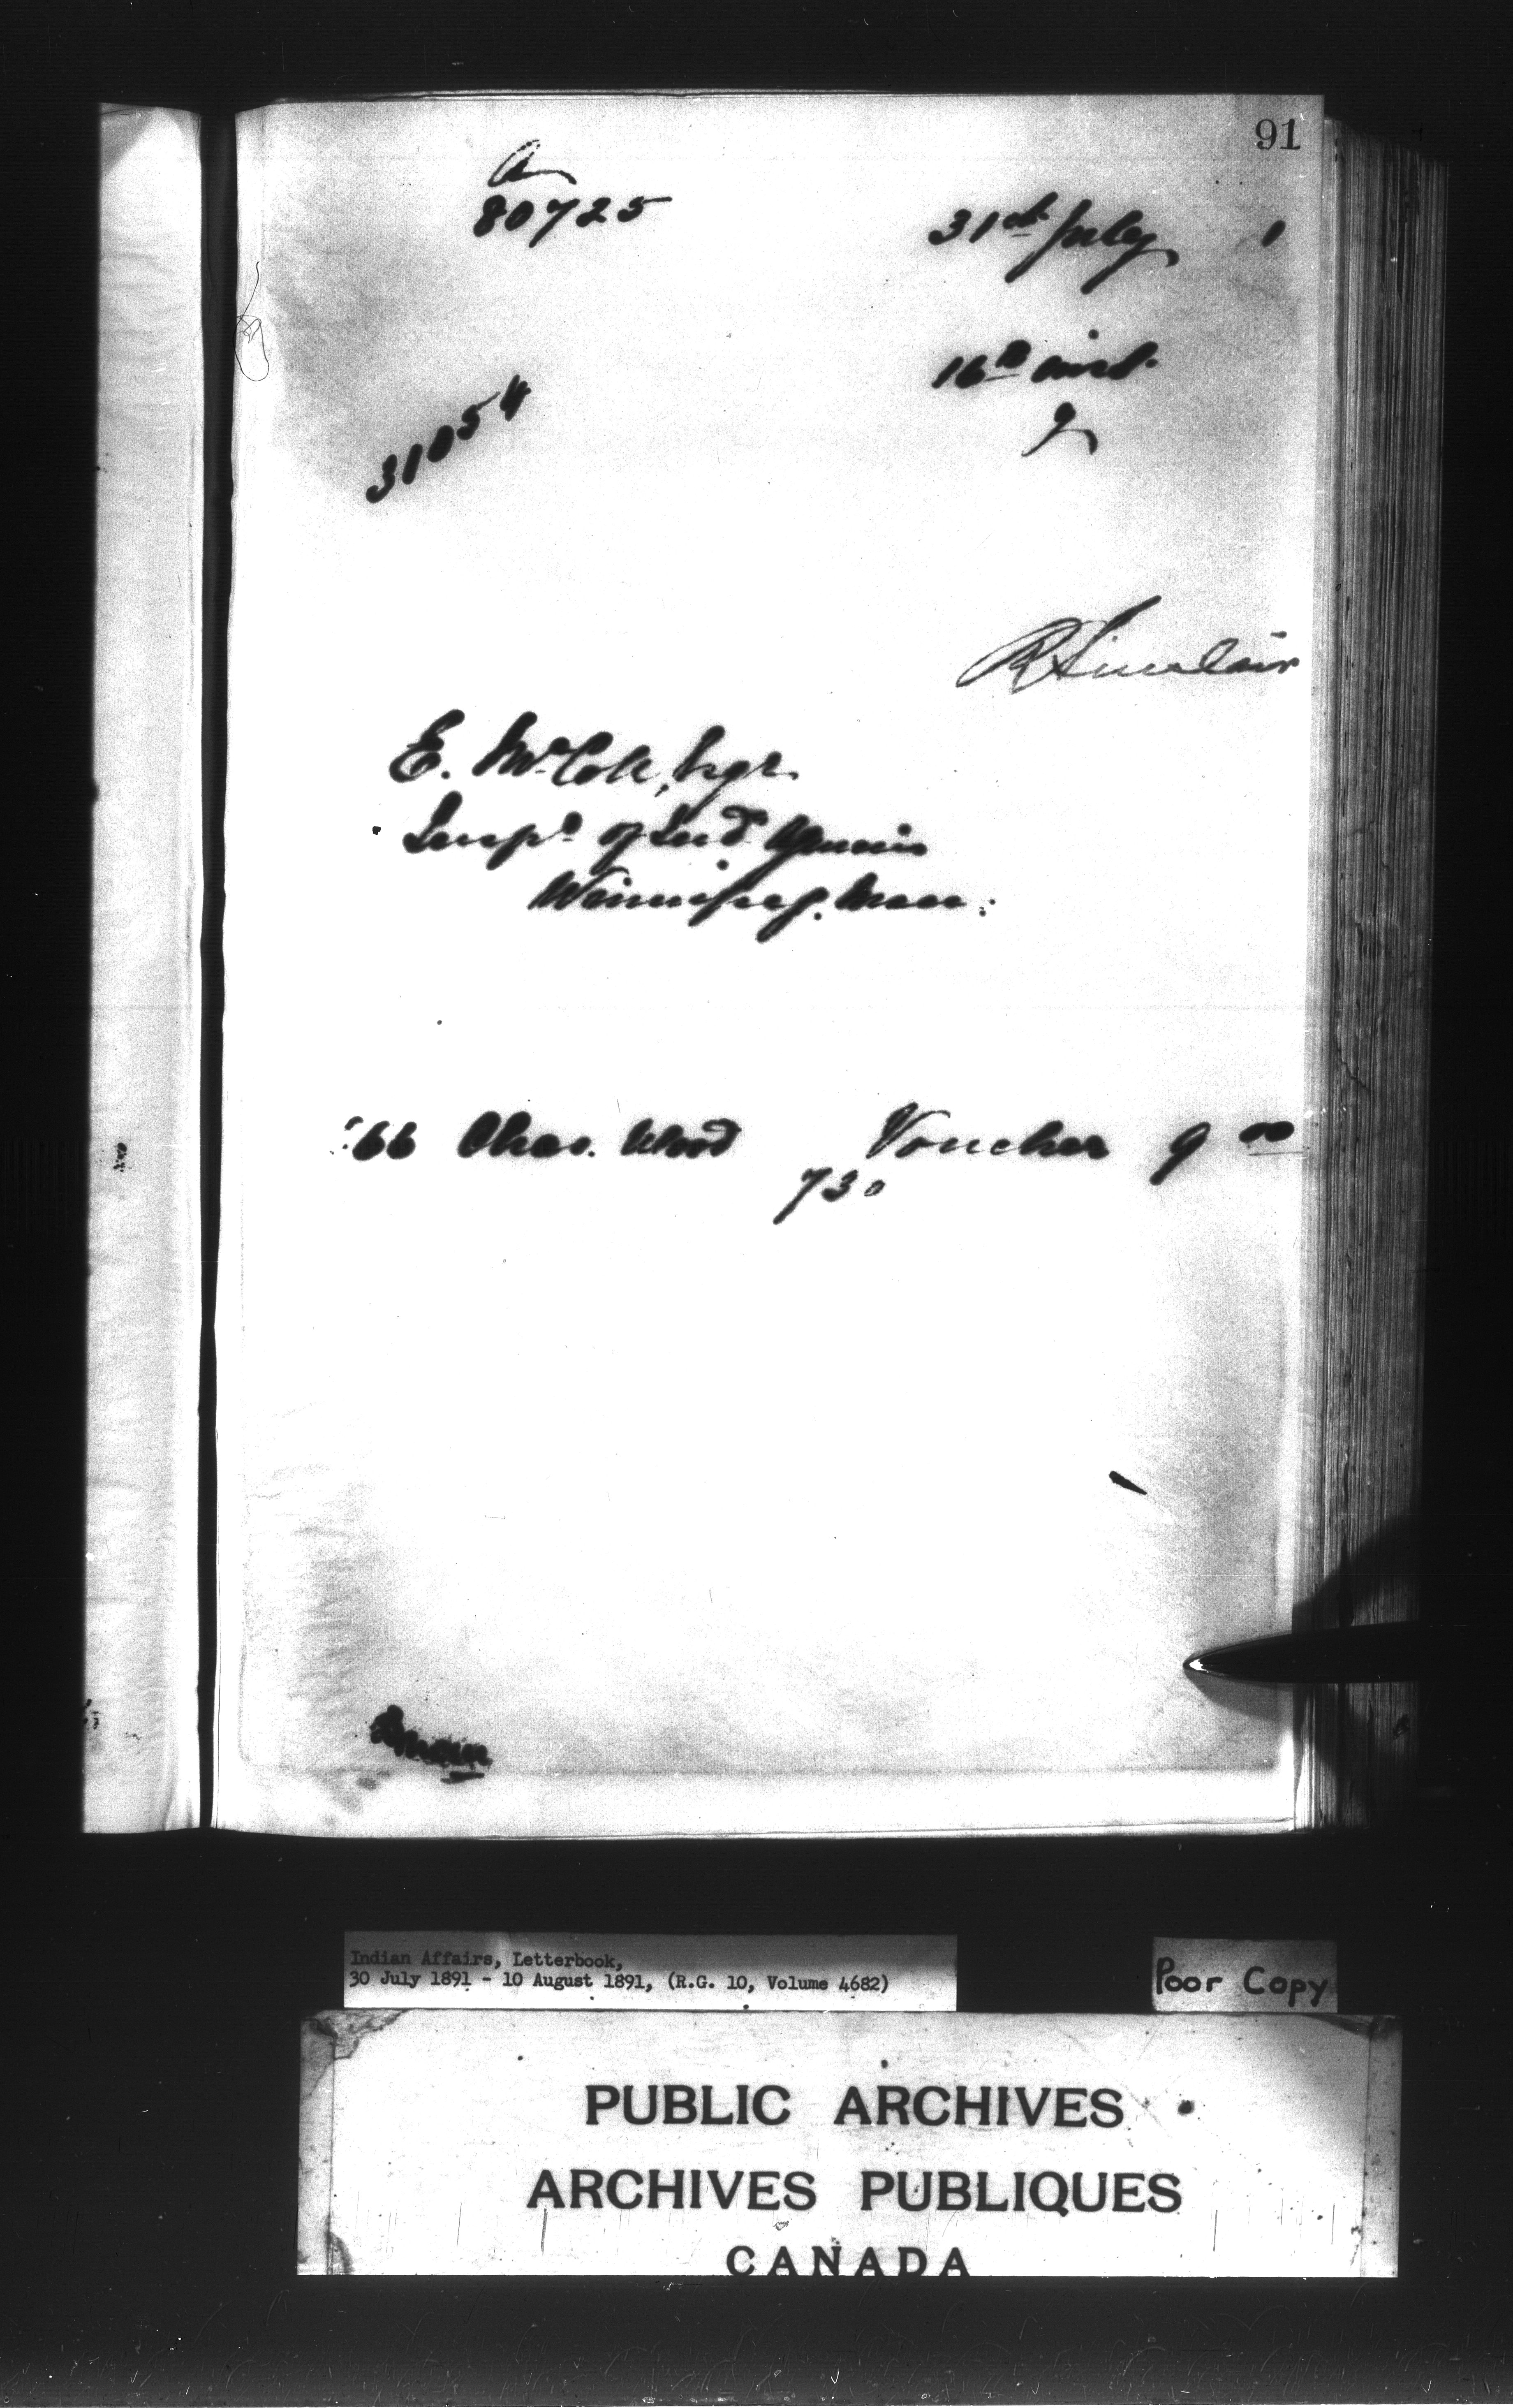 91
A
80725
31st July 1
16th inst.
31054
R Sinclair
E. McColl, Esqr.
Inspr of Ind
Winnipeg. Man:
66 Chas. Wood Voucher 9 00
730
Indian Affairs, Letterbook,
30 July 1891 - 10 August 1891, (R.G. 10, Volume 4682)
Poor Copy
PUBLIC ARCHIVES
ARCHIVES PUBLIQUES
CANADA